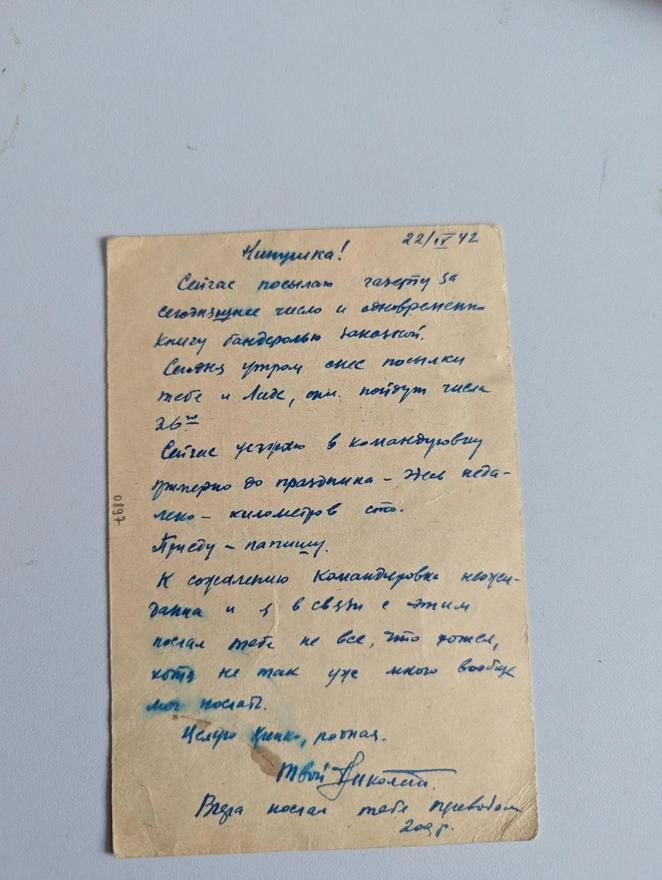 22/IV 42
Нинушка!
Сейчас посылаю газету за
сегодняшнее число и одновременно
книгу бандеролью заказной.
Сегодня утром снес посылки
тебе и Лиде, они пойдут числа
26го
Сейчас уезжаю в командировку
примерно до праздника – здесь неда-
леко – километров сто.
Приеду – напишу.
К сожалению командировка неожи-
данна и я в связи с этим
послал тебе не все, что хотел,
хотя не так уже много вообще
мог послать.
Целую крепко, родная.
Твой Николай.
Вчера послал тебе переводом
200 р.
0897